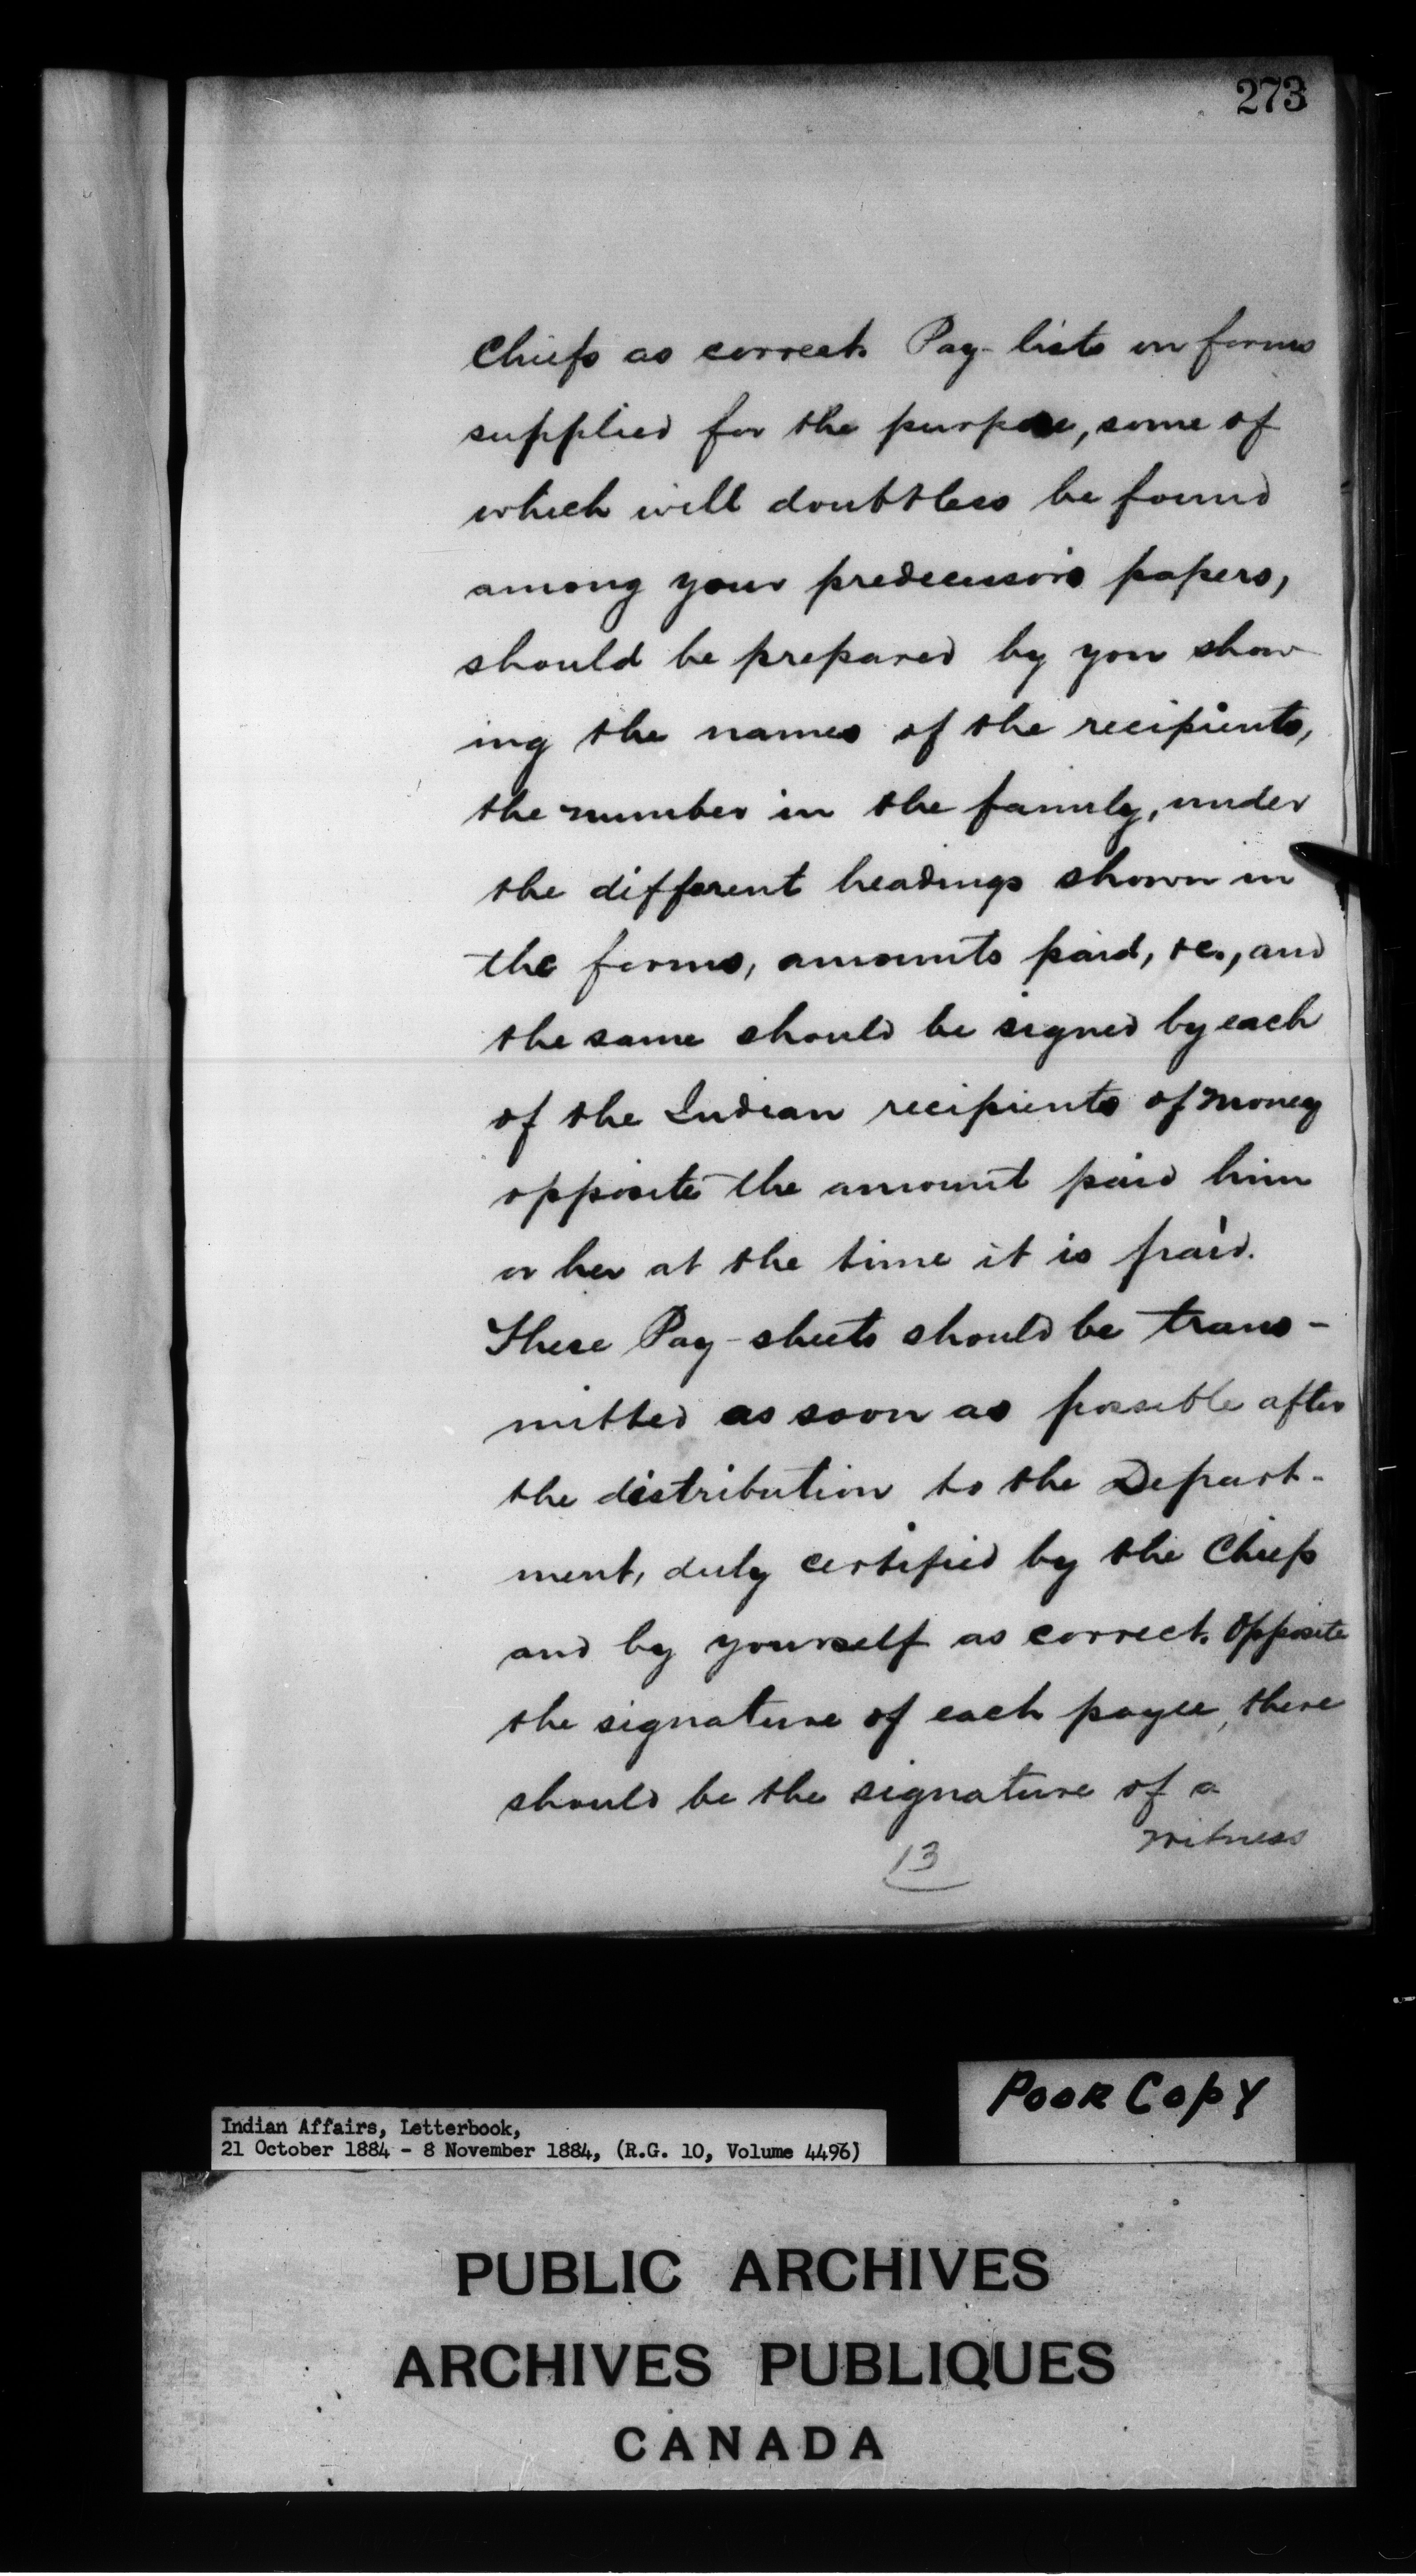 273
Chiefs as correct. Pay-lists on forms
supplied for the purpose, some of
which will doubtless be found
among your predecessors papers,
should be prepared by you show-
ing the names of the recipients,
the number in the family, under
the different headings shown in
the forms, amounts paid, &c., and
the same should be signed by each
of the Indian recipients of money
opposite the amount paid him
or her at the time it is paid.
These Pay-sheets should be trans-
mitted as soon as possible after
the distribution to the Depart-
ment, duly certified by the Chiefs
and by yourself as correct. Opposite
the signature of each payee, there
should be the signature of a
witness
13
POOR COPY
Indian Affairs, Letterbook,
21 October 1884 - 8 November 1884, (R.G. 10, Volume 4496)
PUBLIC ARCHIVES
ARCHIVES PUBLIQUES
CANADA